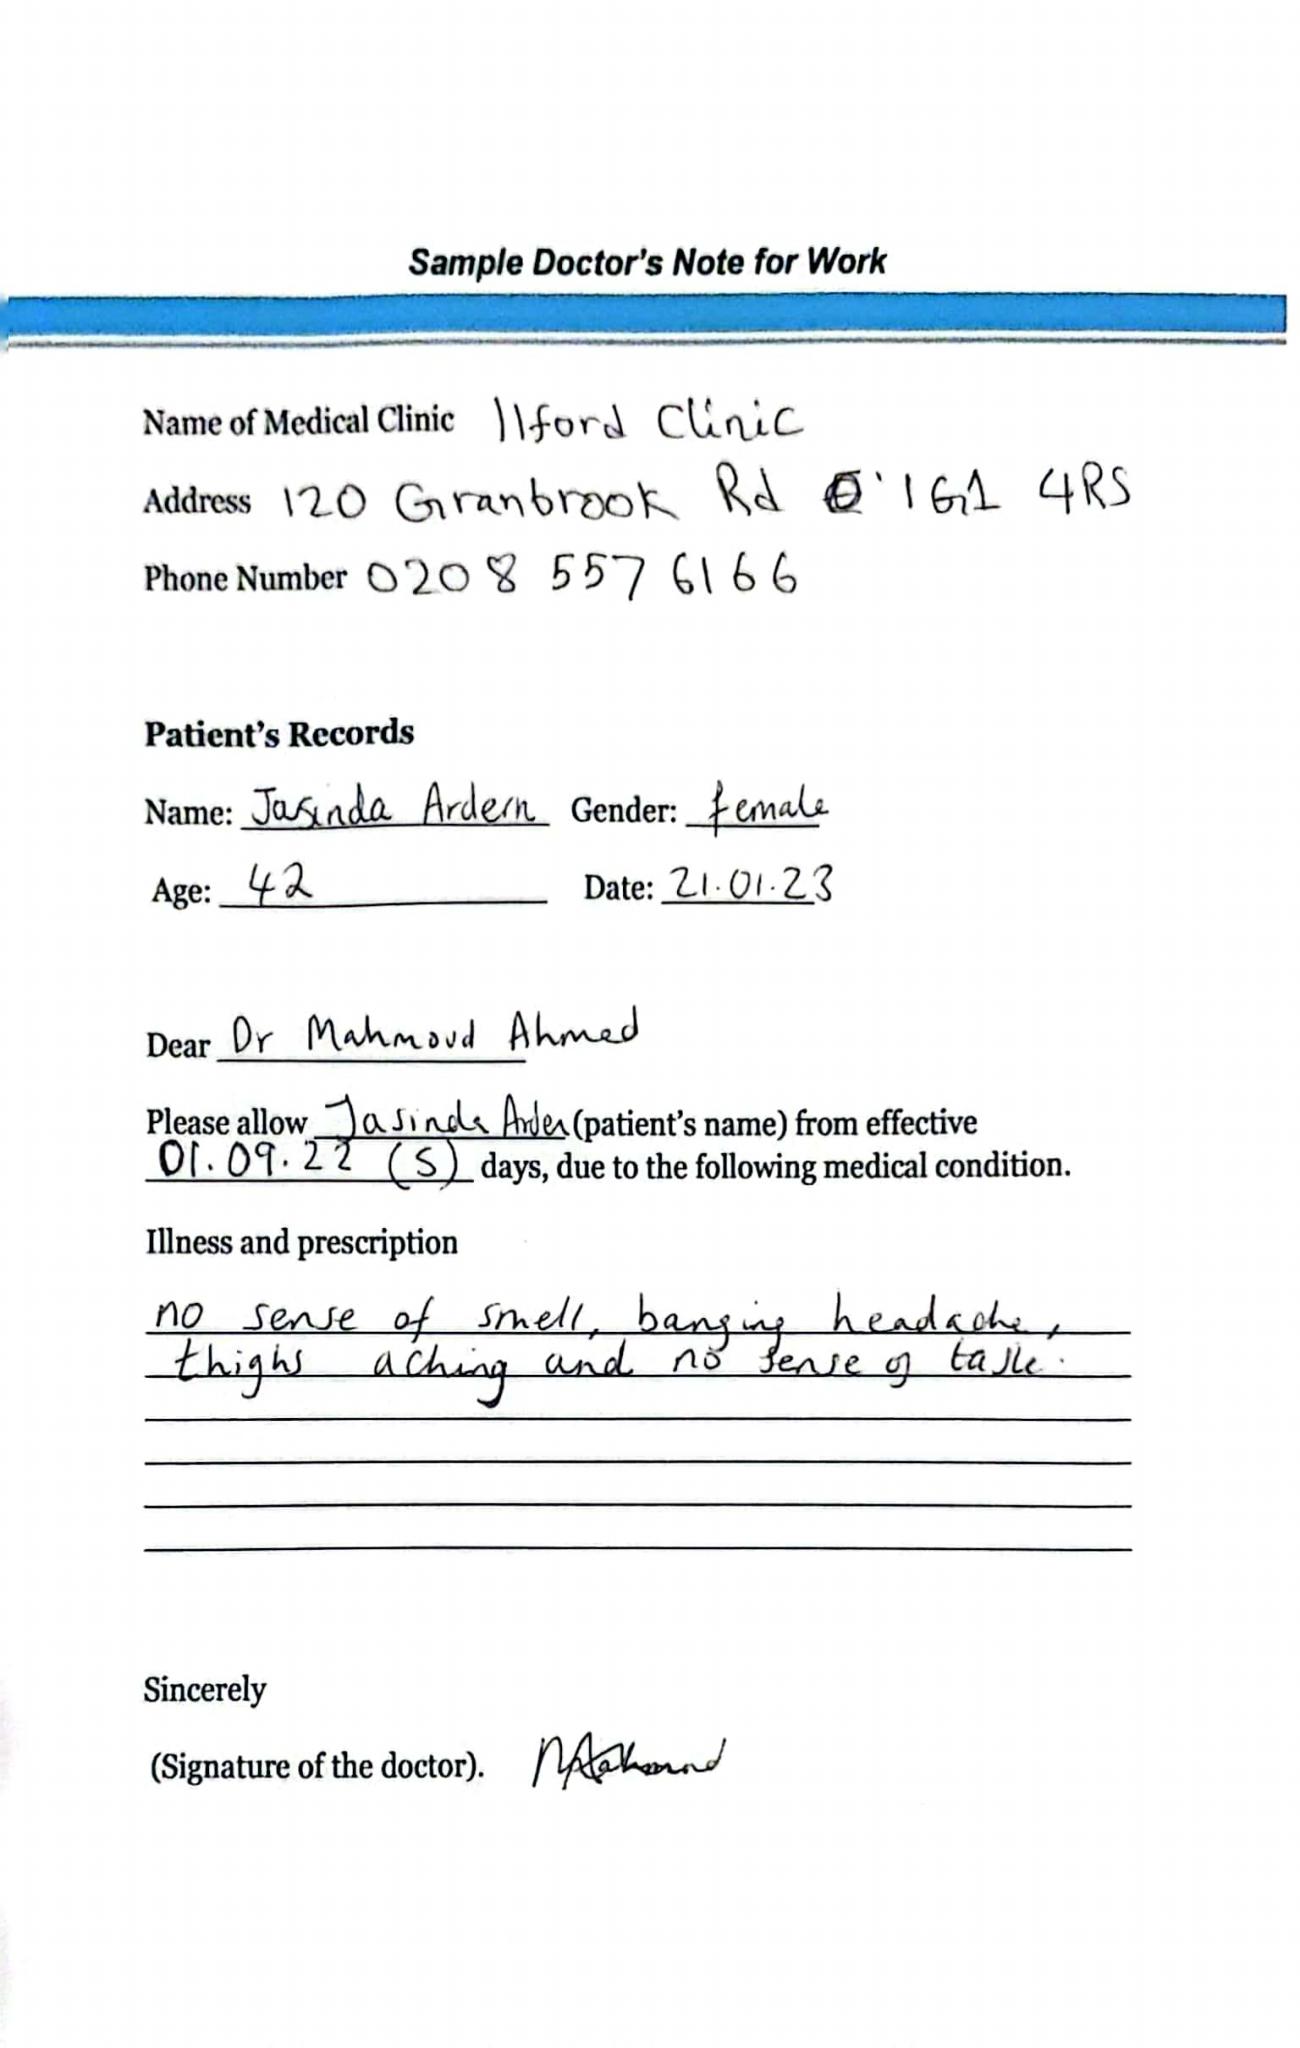 Sample Doctor's Note for Work
Name of Medical Clinic Ilford Clinic
Address 120 Granbrook Rd IG1 4RS
Phone Number 0208 557 6166
Patient's Records
Name: Jasinda Ardern Gender: female
Age: 42 Date: 21.01.23
Dear Dr Mahmoud Ahmed
Please allow Jasinda Arden (patient's name) from effective
01.09.22 (5) days, due to the following medical condition.
Illness and prescription
no sense of smell, banging headache,
thighs aching and no sense of taste.
Sincerely
(Signature of the doctor).